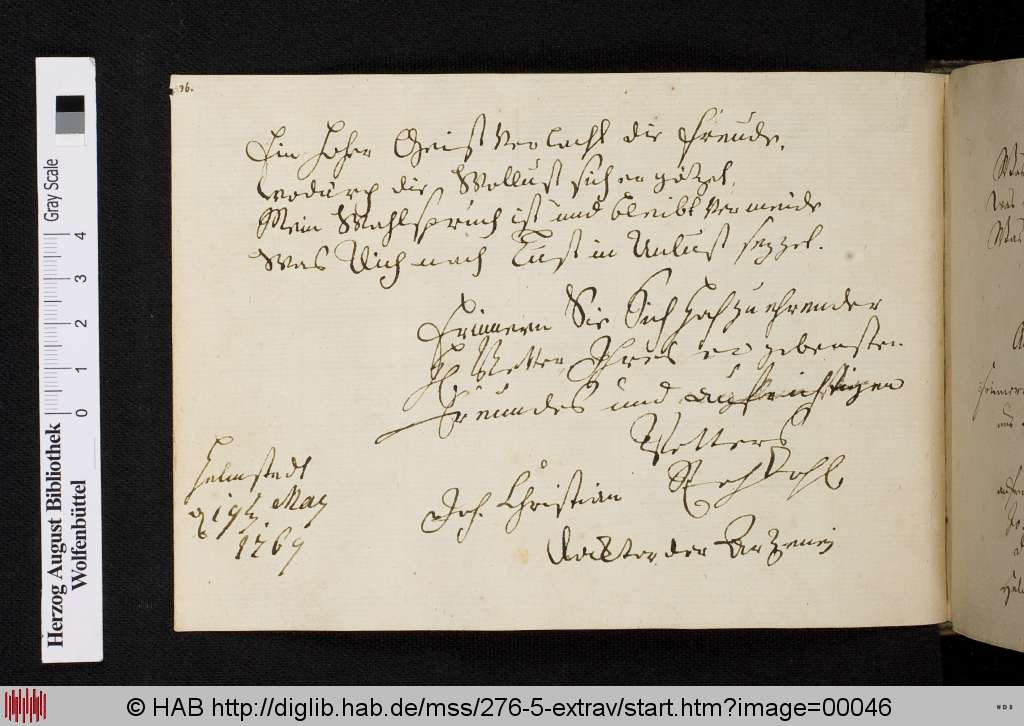 76.
Ein hoher Geist verlacht die Freude,
wodurch die Wollust sich ergötzet,
Mein Wahlspruch ist und bleibt vermeide
Was Dich nach Lust in Unlust sezzet.
Erinnern Sie Sich hochzuehrender
H. Vetter Ihres ergebensten
Freundes und aufrichtigen
Vetters
Joh. Christian Rehkohl
Docktor der Arzenei
Helmstedt
d 19t May
1769
Herzog August Bibliothek
Wolfenbüttel
Gray Scale
0 1 2 3 4
© HAB http://diglib.hab.de/mss/276-5-extrav/start.htm?image=00046